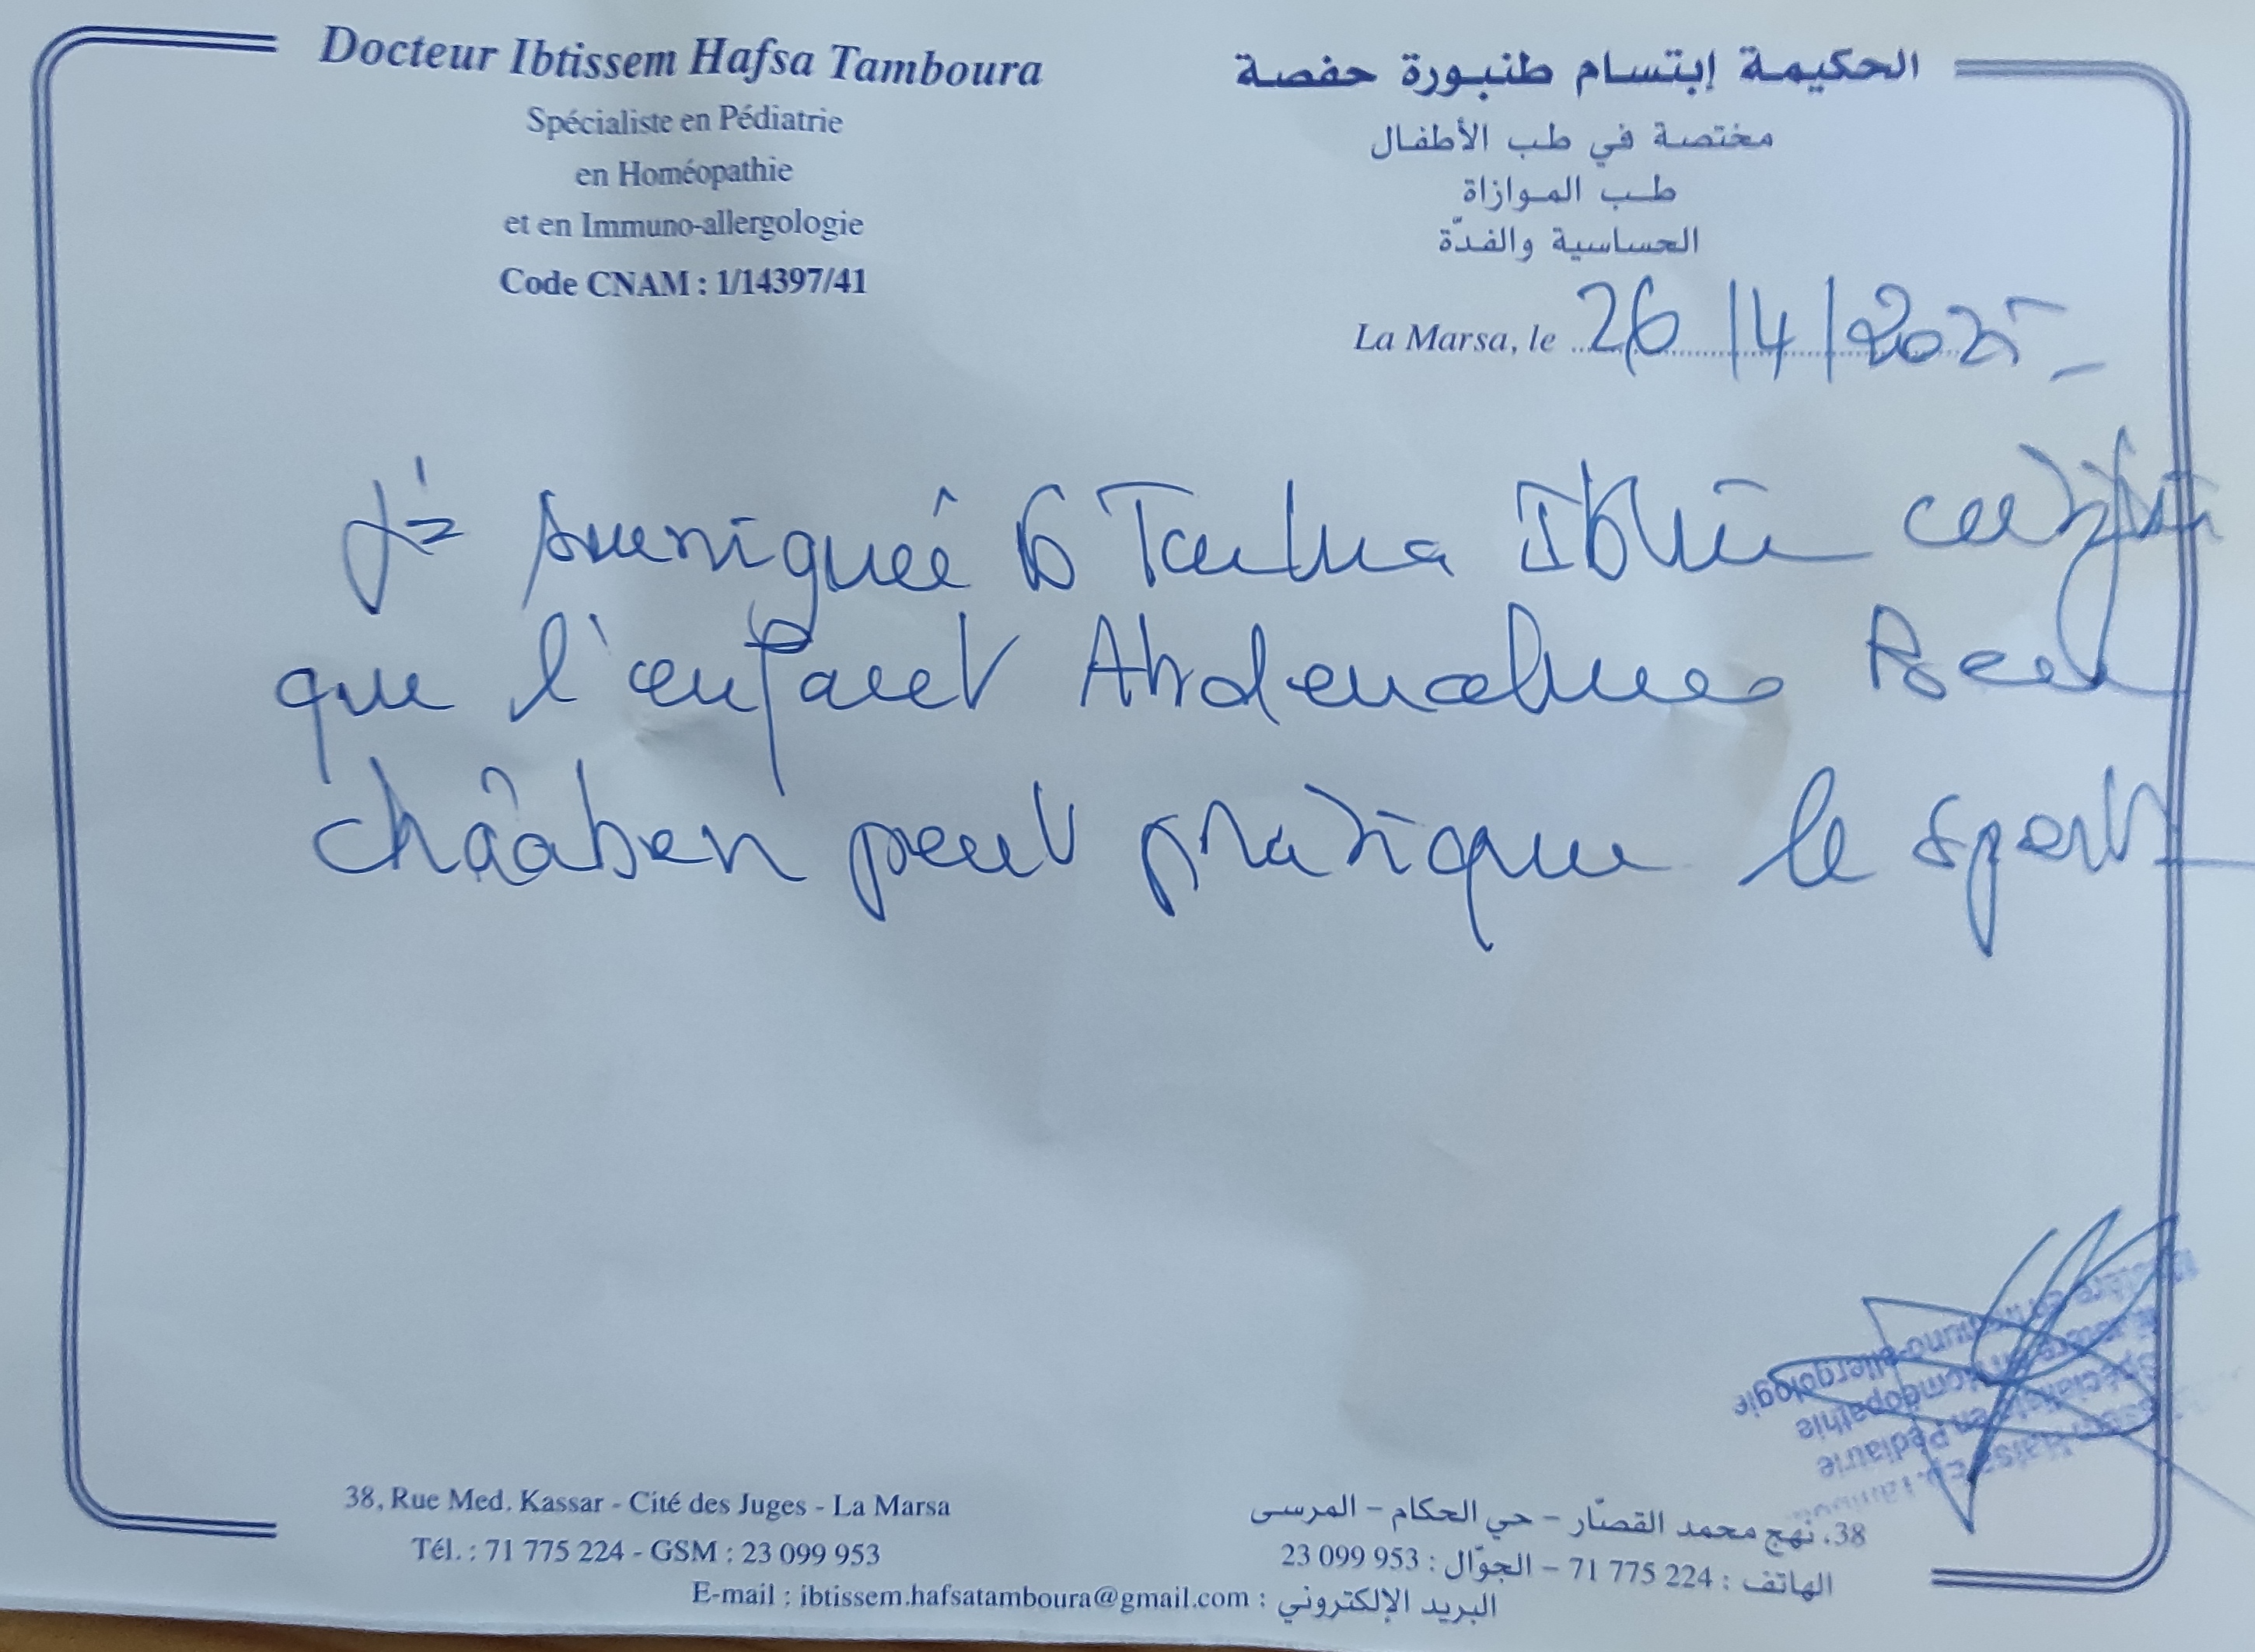 Docteur Ibtissem Hafsa Tamboura
Spécialiste en Pédiatrie
en Homéopathie
et en Immuno-allergologie
Code CNAM : 1/14397/41
الحكيمة إبتسام طنبورة حفصة
مختصة في طب الأطفال
طب الموازاة
الحساسية والفدّة
La Marsa, le 26/4/2025
que l'enfant Abderrahmen Ben
châaben peut pratique le sport
Immuno-allergologie
Homéopathie
Spécialiste en Pédiatrie
38, Rue Med. Kassar - Cité des Juges - La Marsa
Tél. : 71 775 224 - GSM : 23 099 953
38. نهج محمد القصّار - حي الحكام - المرسى
الهاتف : 224 775 71 - الجوّال : 953 099 23
E-mail : ibtissem.hafsatamboura@gmail.com : البريد الإلكتروني